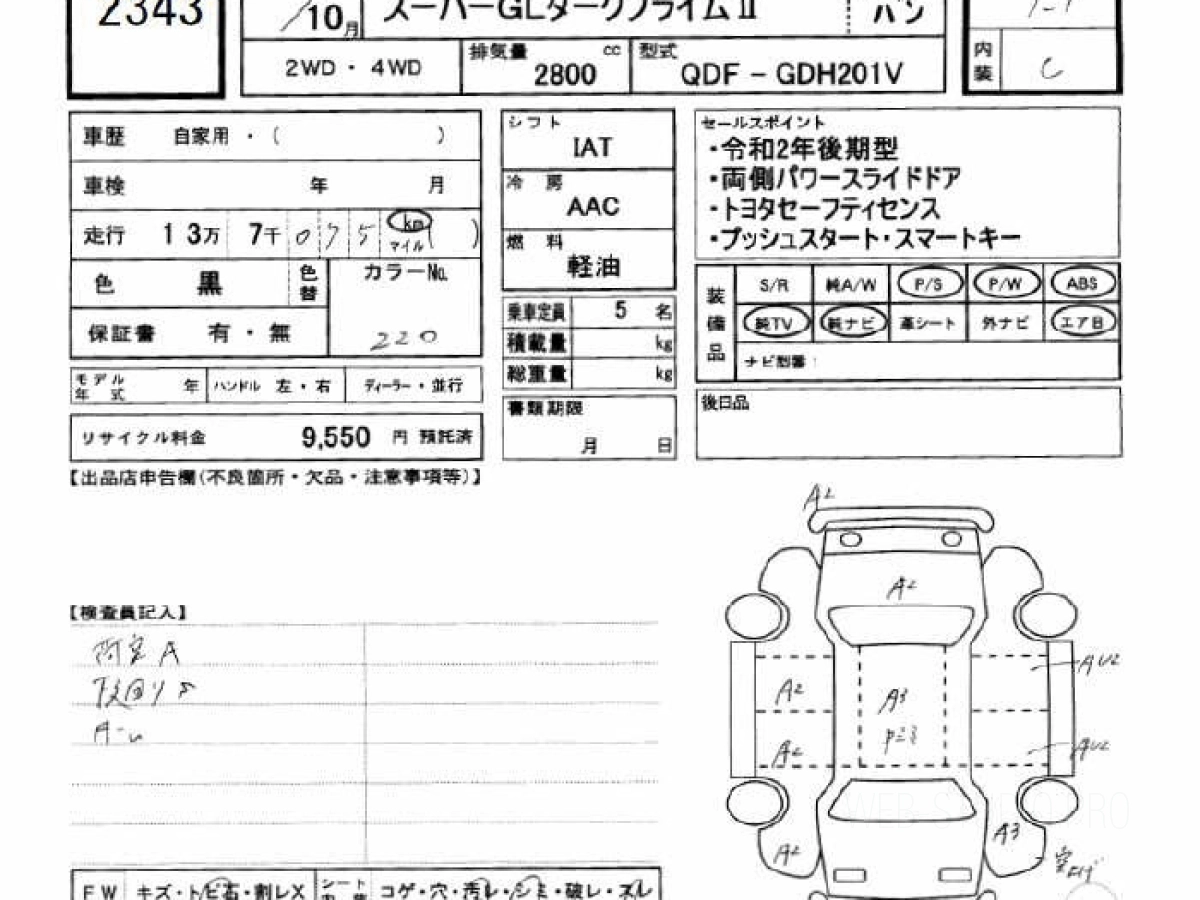 2343
10月 スーパーGLダークプライムⅡ バン
2WD・4WD 排気量 2800 cc 型式 QDF－GDH201V
内装 C
車歴 自家用・( )
車検 年 月
走行 13万 7千 075 km マイル ( )
色 黒 色替 カラーNo. 220
保証書 有・無
モデル年式 年 ハンドル 左・右 ディーラー・並行
リサイクル料金 9,550 円 預託済
シフト IAT
冷房 AAC
燃料 軽油
乗車定員 5 名
積載量 kg
総重量 kg
書類期限 月 日
セールスポイント
・令和2年後期型
・両側パワースライドドア
・トヨタセーフティセンス
・プッシュスタート・スマートキー
装備品 S/R 純A/W P/S P/W ABS
純TV 純ナビ 革シート 外ナビ エアB
ナビ型番：
後日品
【出品店申告欄(不良箇所・欠品・注意事項等)】
【検査員記入】
A2
A2
AU2
A2 A3
A2 AU2
A2 A3
FW キズ・トビ石・割レX シート コゲ・穴・汚レ・シミ・破レ・スレ